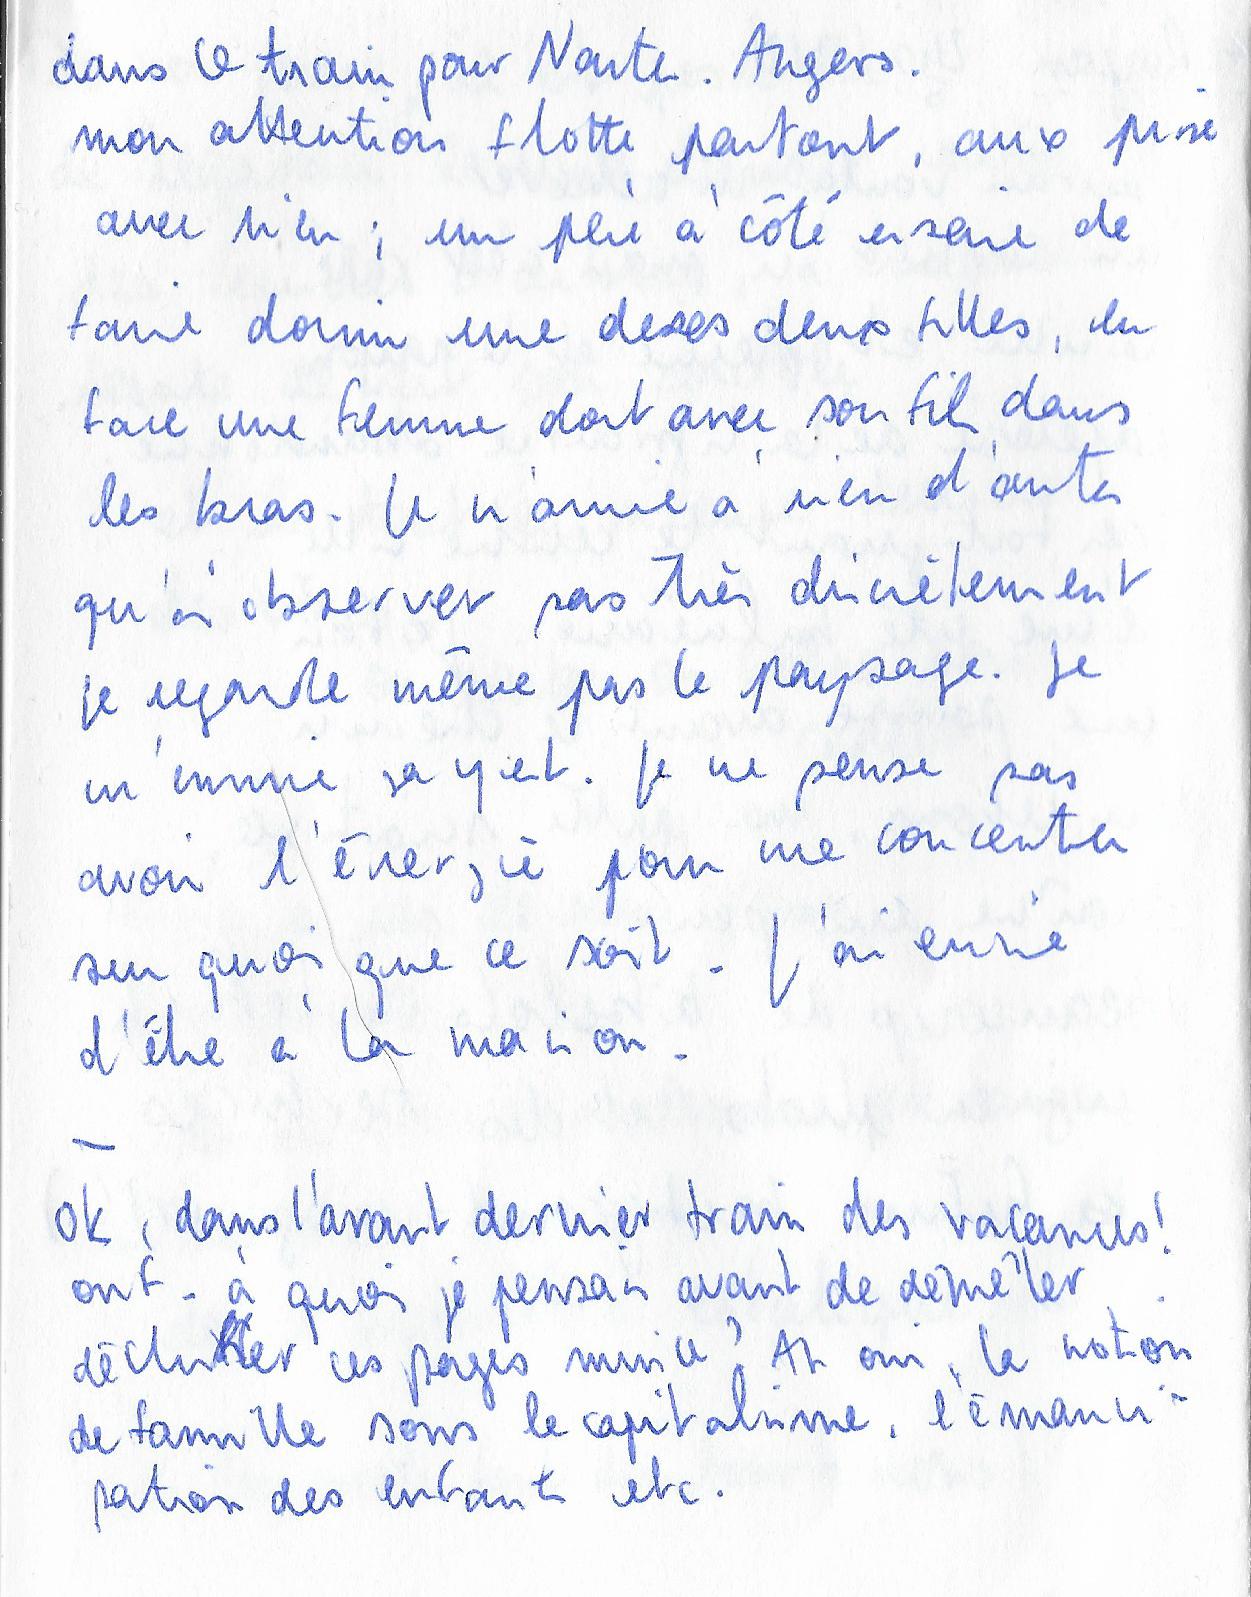 dans le train pour Nantes. Angers.
mon attention flotte partout, aux prise
avec rien ; un père à côté essaie de
faire dormir une de ses deux filles, en
face une femme dort avec son fils dans
les bras. Je n'arrive à rien d'autre
qu'à observer pas très discrètement
je regarde même pas le paysage. Je
m'ennuie ça y est. Je ne pense pas
avoir l'énergie pour me concentrer
sur quoi que ce soit. J'ai envie
d'être à la maison.
—
ok, dans l'avant dernier train des vacances!
ouf. à quoi je pensais avant de démêler
ces pages ? Ah oui, la notion
de famille sous le capitalisme, l'émanci-
pation des enfants etc.